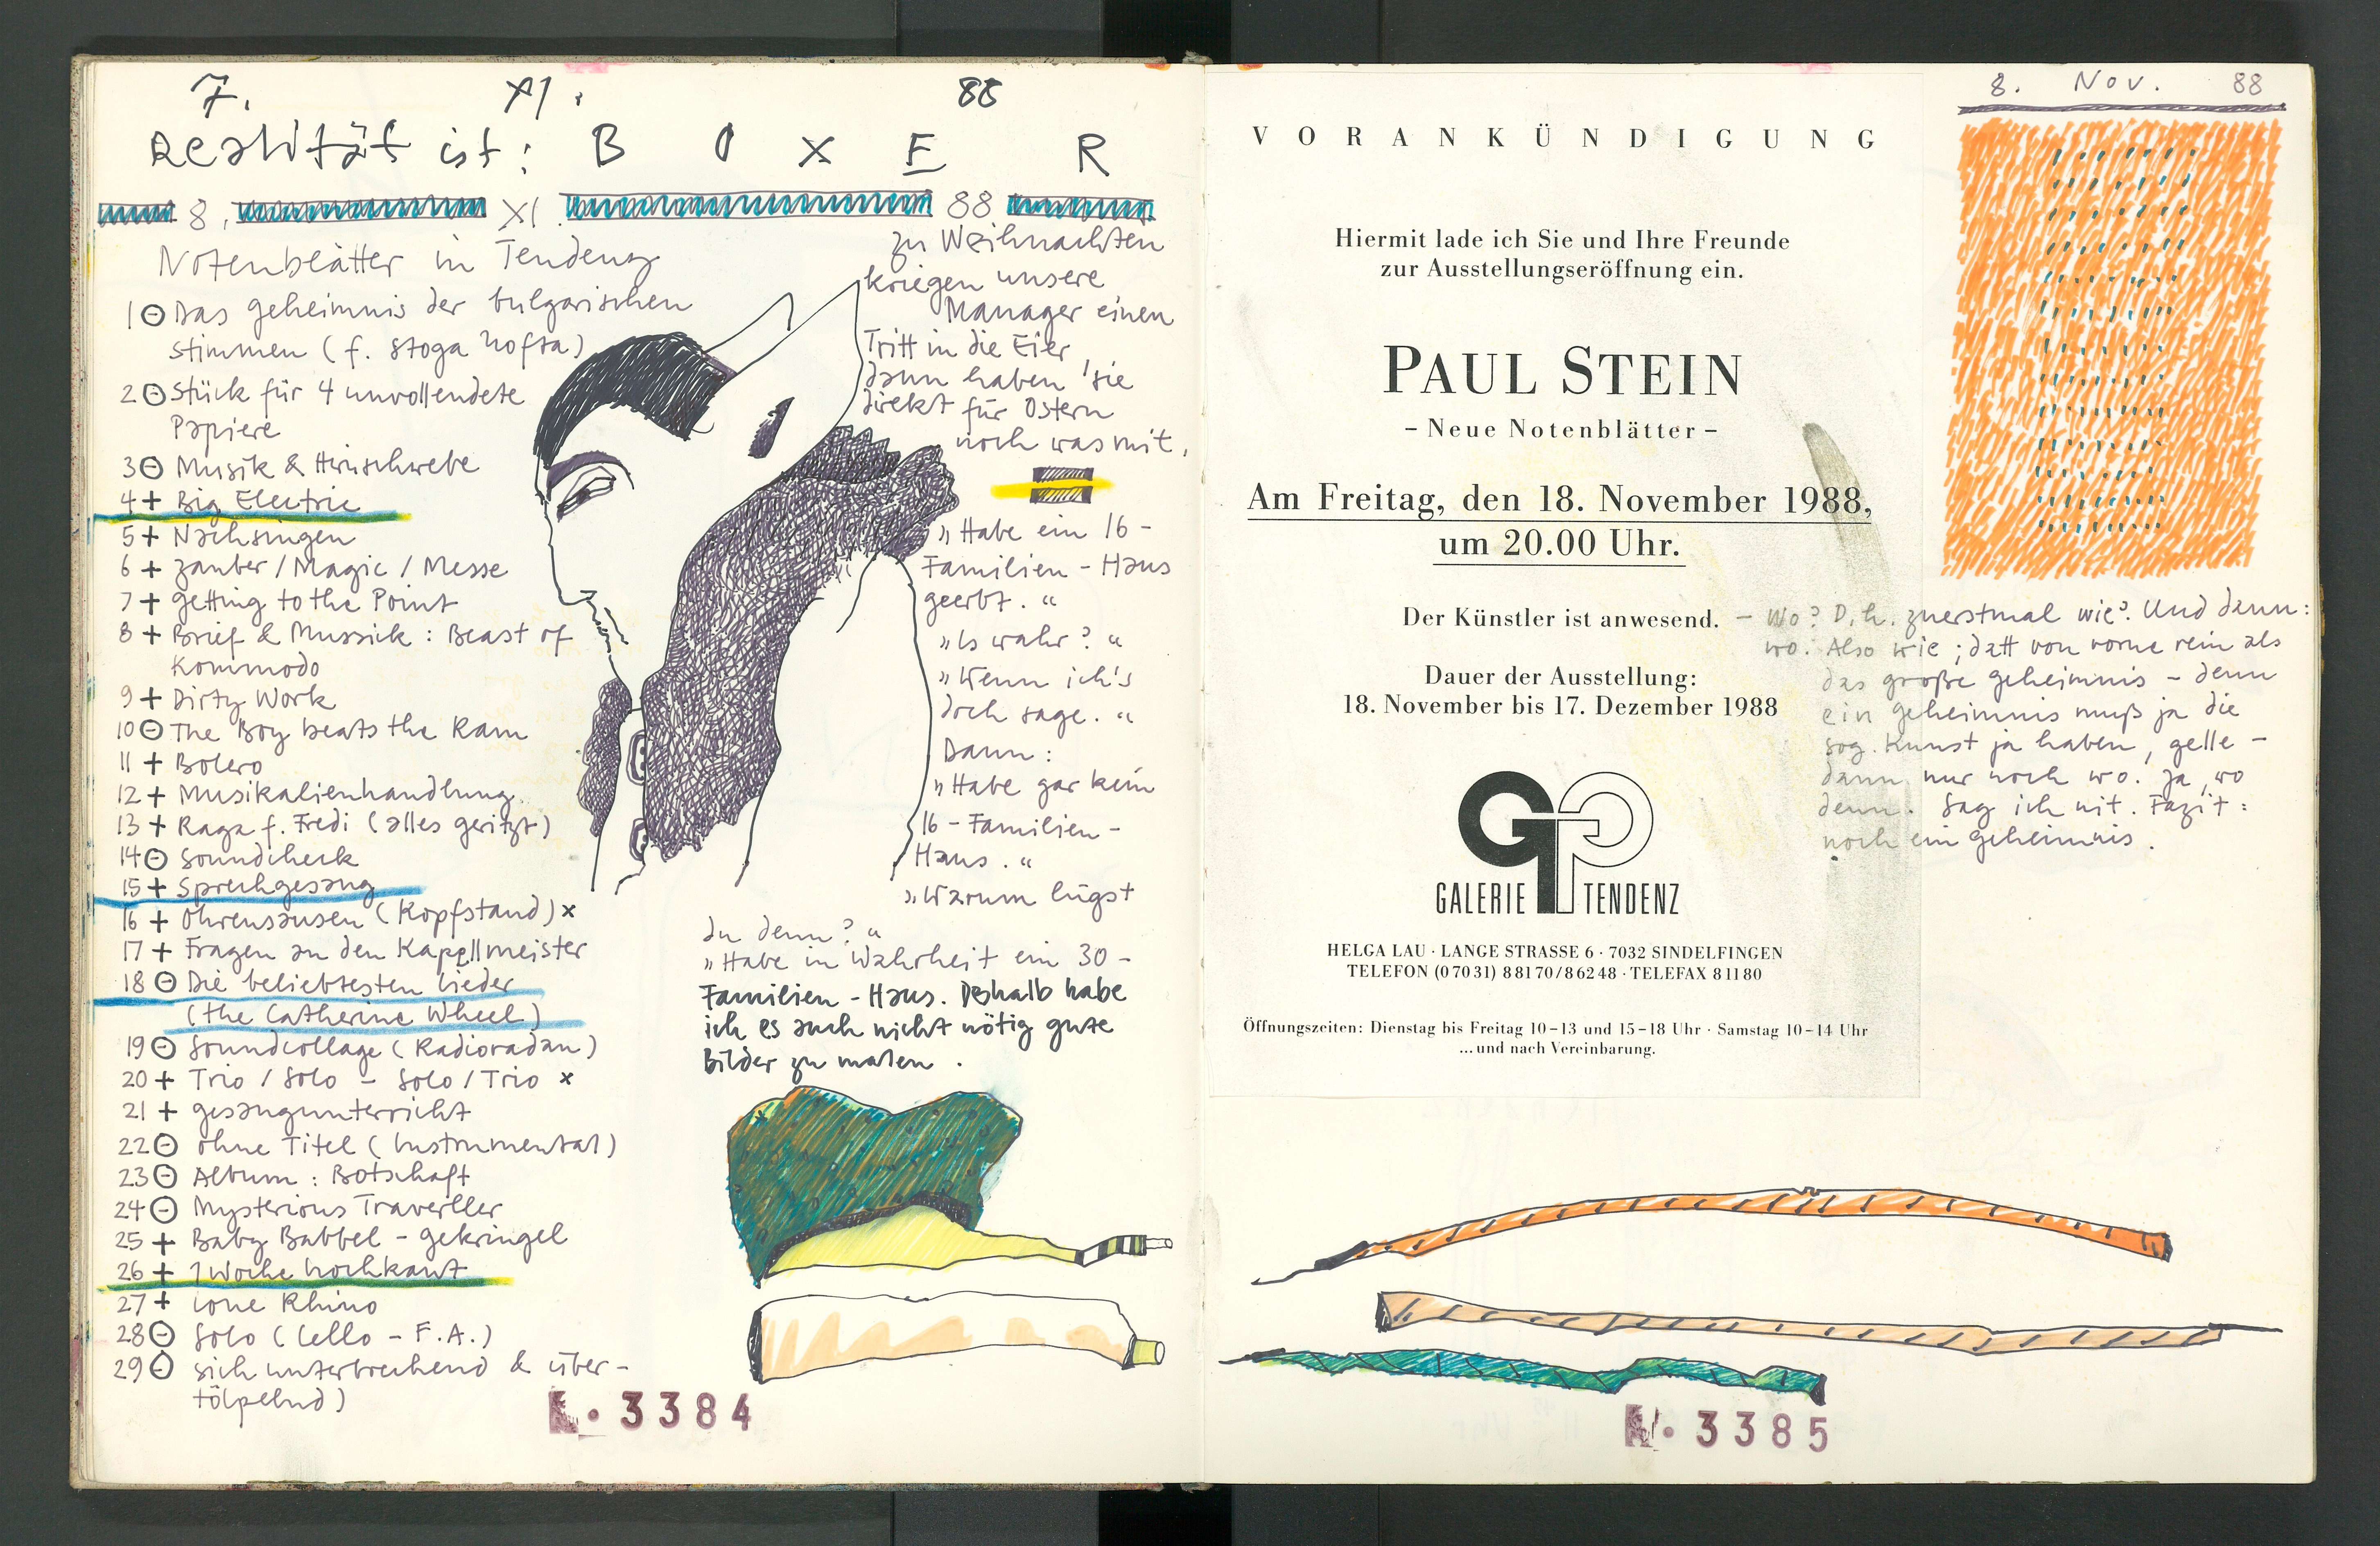 7. XI. 88
Realität ist: B O X E R
8. XI 88
Notenblätter in Tendenz
1 ⊖ Das Geheimnis der bulgarischen
Stimmen (f. Stoga
2 ⊖ Stück für 4 unvollendete
Papiere
3 ⊖ Musik & Hirnschwebe
4 + Big Electric
5 + Nachsingen
6 + Zauber / Magic / Messe
7 + Getting to the Point
8 + Brief & Mussick : Beast of
Kommodo
9 + Dirty Work
10 ⊖ The Boy beats the Ram
11 + Bolero
12 + Musikalienhandlung
13 + Raga f. Fredi (alles geritzt)
14 ⊖ Soundcheck
15 + Sprechgesang
16 + Ohrensausen (Kopfstand) x
17 + Fragen an den Kapellmeister
18 ⊖ Die beliebtesten Lieder
(The Catherine Wheel)
19 ⊖ Soundcollage (Radioradau)
20 + Trio / Solo – Solo / Trio x
21 + Gesangunterricht
22 ⊖ Ohne Titel (Instrumental)
23 ⊖ Album : Botschaft
24 ⊖ Mysterious Traveller
25 + Baby Babbel – Gekringel
26 + 1 Woche hochkant
27 + Lone Rhino
28 ⊖ Solo (Cello – F.A.)
29 ⊖ sich unterbrechend & über-
tölpelnd)
zu Weihnachten
kriegen unsere
Manager einen
Tritt in die Eier
dann haben sie
direkt für Ostern
noch was mit.
„Habe ein 16 -
Familien - Haus
geerbt. "
„Is wahr? "
„Wenn ich's
doch sage. "
Dann :
„Habe gar kein
16 - Familien -
Haus . "
„Warum lügst
du denn? "
„Habe in Wahrheit ein 30 -
Familien - Haus. Deshalb habe
ich es auch nicht nötig gute
Bilder zu malen .
N. 3384
8. Nov. 88
VORANKÜNDIGUNG
Hiermit lade ich Sie und Ihre Freunde
zur Ausstellungseröffnung ein.
PAUL STEIN
– Neue Notenblätter –
Am Freitag, den 18. November 1988,
um 20.00 Uhr.
Der Künstler ist anwesend.
Dauer der Ausstellung:
18. November bis 17. Dezember 1988
GP
GALERIE TENDENZ
HELGA LAU · LANGE STRASSE 6 · 7032 SINDELFINGEN
TELEFON (07031) 88170/86248 · TELEFAX 81180
Öffnungszeiten: Dienstag bis Freitag 10–13 und 15–18 Uhr · Samstag 10–14 Uhr
...und nach Vereinbarung.
– Wo? D.h. zuerstmal wie? Und dann:
wo. Also wie ; datt von vorne rein als
das große Geheimnis – denn
ein Geheimnis muß ja die
sog. Kunst ja haben, gelle –
dann nur noch wo. Ja, wo
denn. Sag ich nit. Fazit :
noch ein Geheimnis.
N. 3385